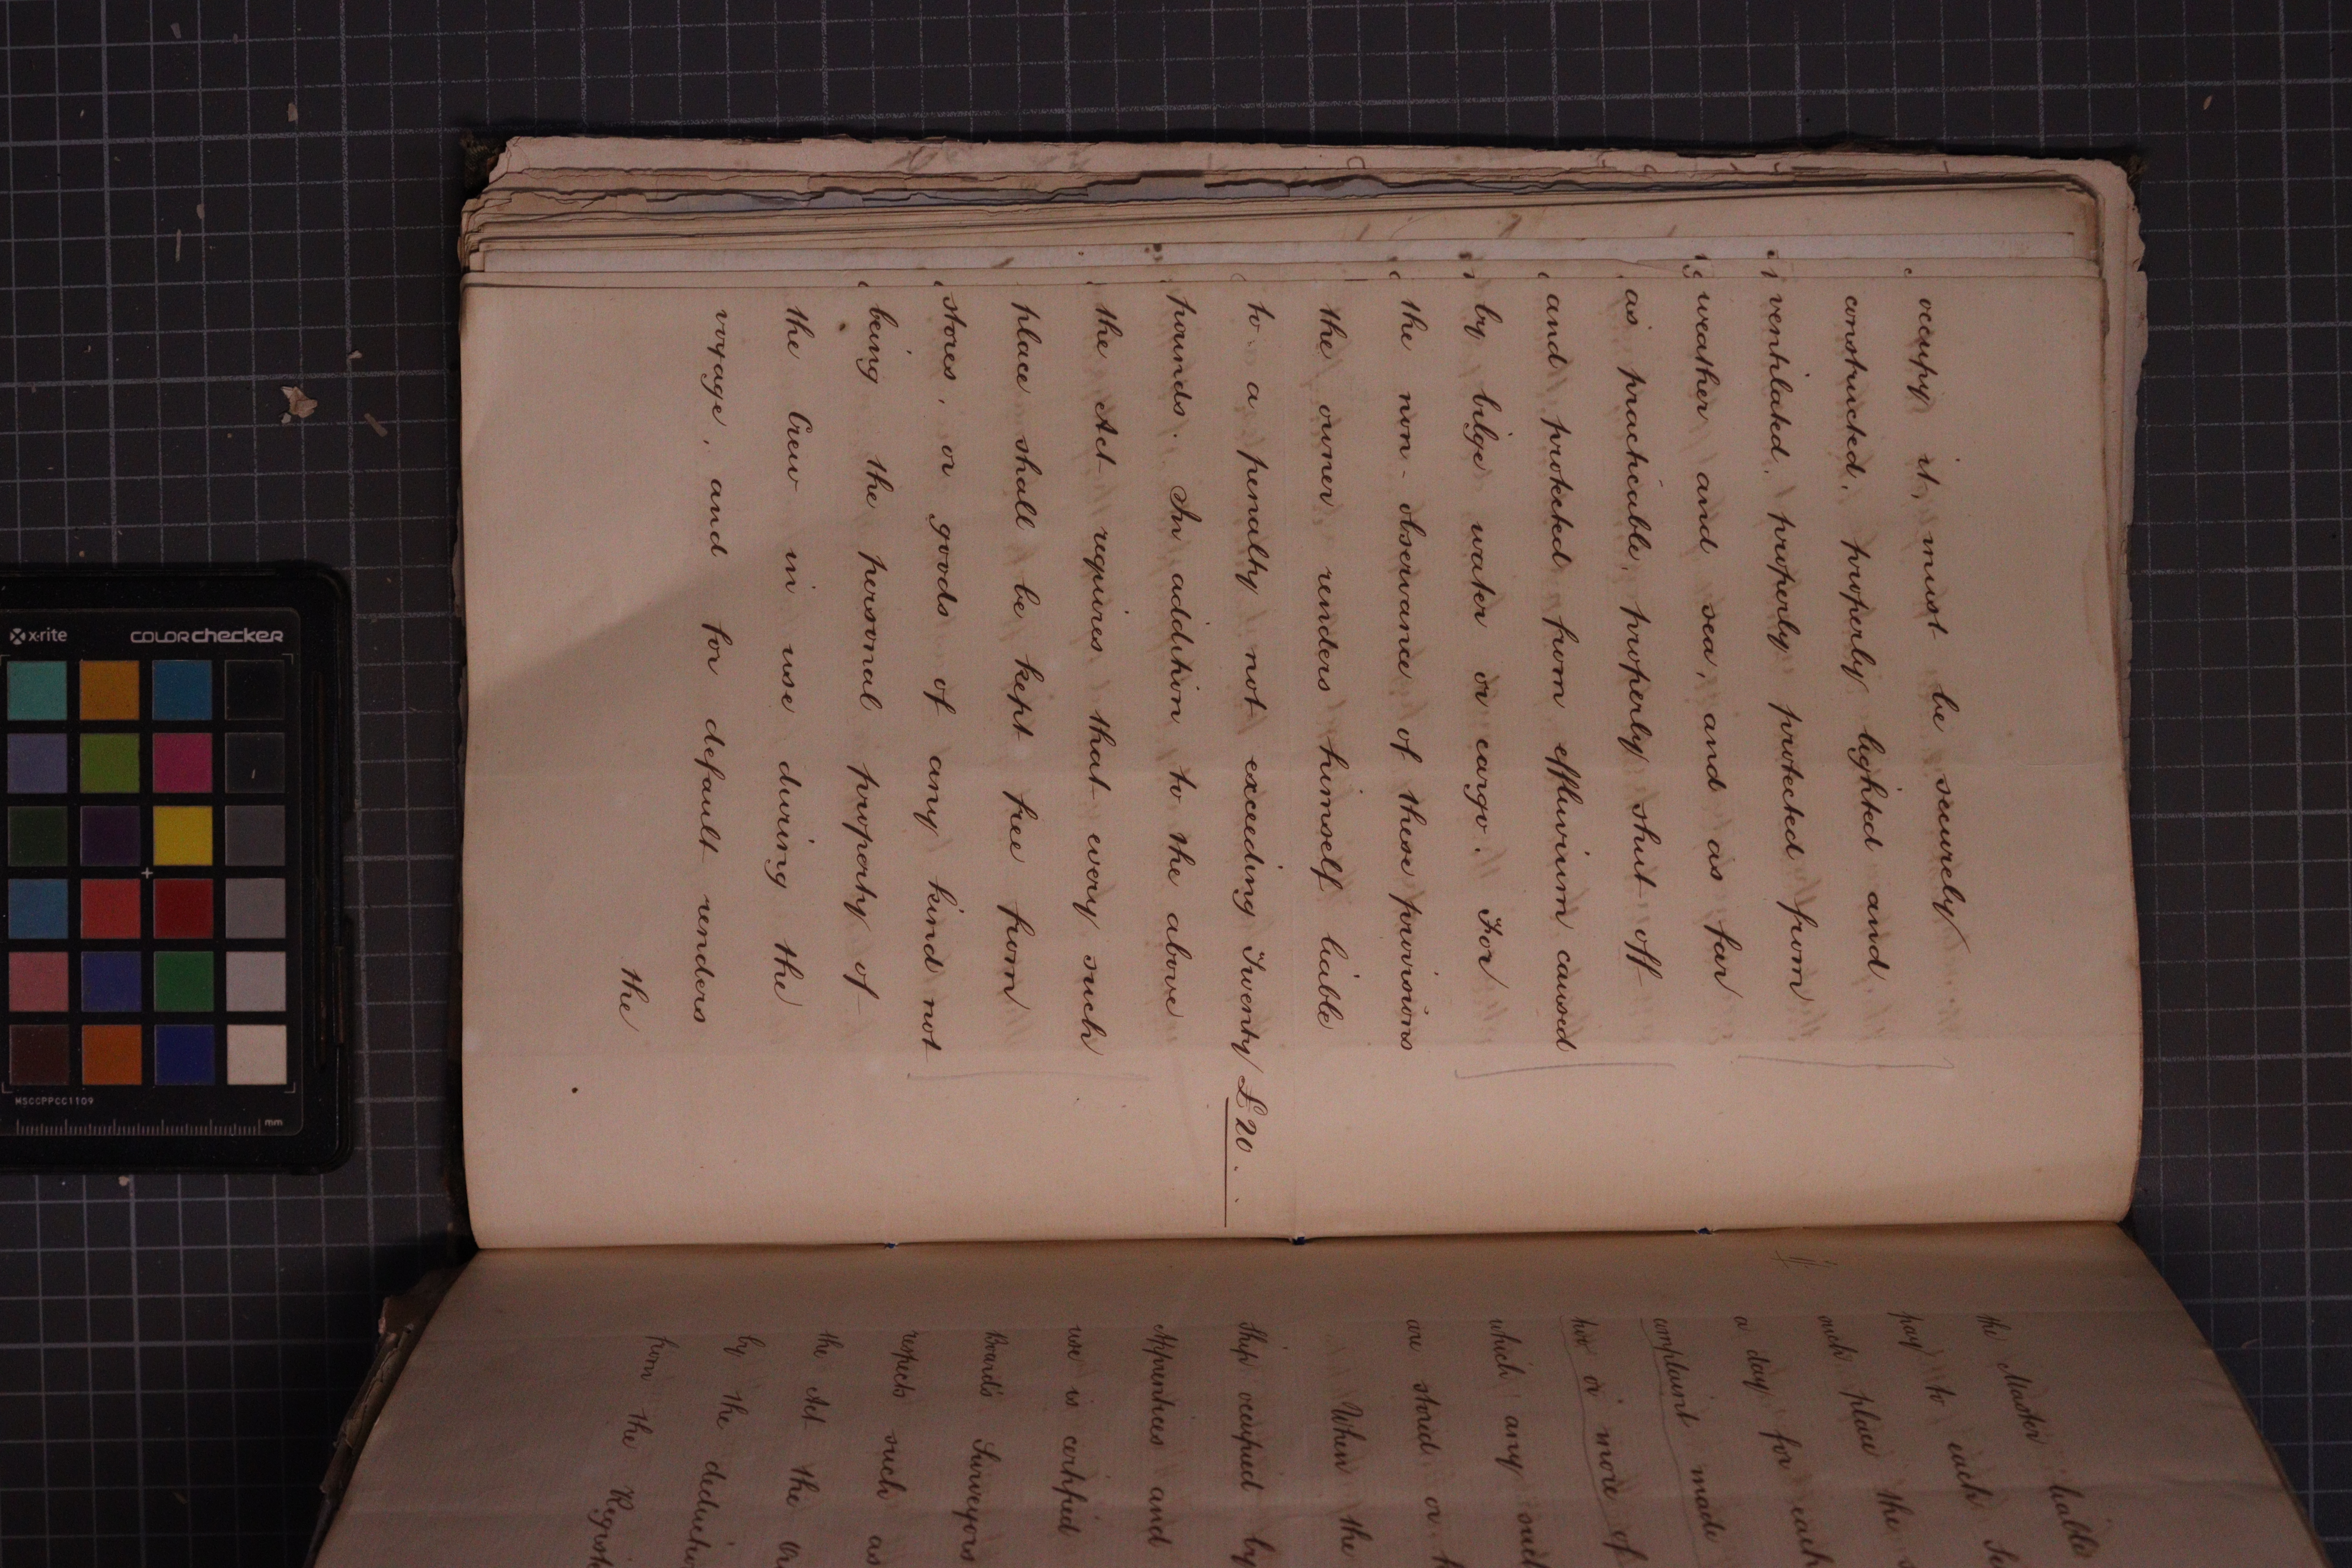 occupy it, must be securely
constructed, properly lighted and
ventilated, properly protected from
weather and sea, and as far
as practicable, properly shut off
and protected from effluvium caused
by bilge water or cargo. For
the non-observance of these provisions
the owner renders himself liable
to a penalty not exceeding Twenty £20.
pounds. In addition to the above
the Act requires that every such
place shall be kept free from
stores, or goods of any kind not
being the personal property of
the Crew in use during the
voyage, and for default renders
the
the Master liable
pay to each
such place the
a day for each
complaint made
two or more of
which any such
are stored or
When the
Ship occupied by
Apprentices and
use is certified
Board's Surveyors
respects such as
the Act the
by the
from the
x-rite colorchecker
MSCCPPCC1109
mm